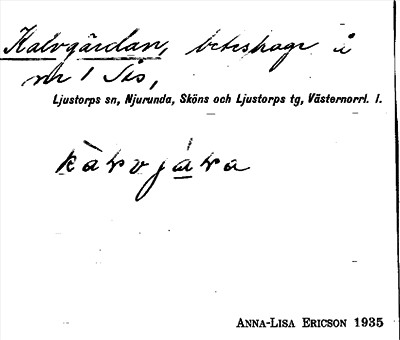 Kalvgärdan, beteshage å
nr 1 Sis,
Ljustorps sn, Njurunda, Sköns och Ljustorps tg, Västernorrl. l.
ANNA-LISA ERICSON 1935